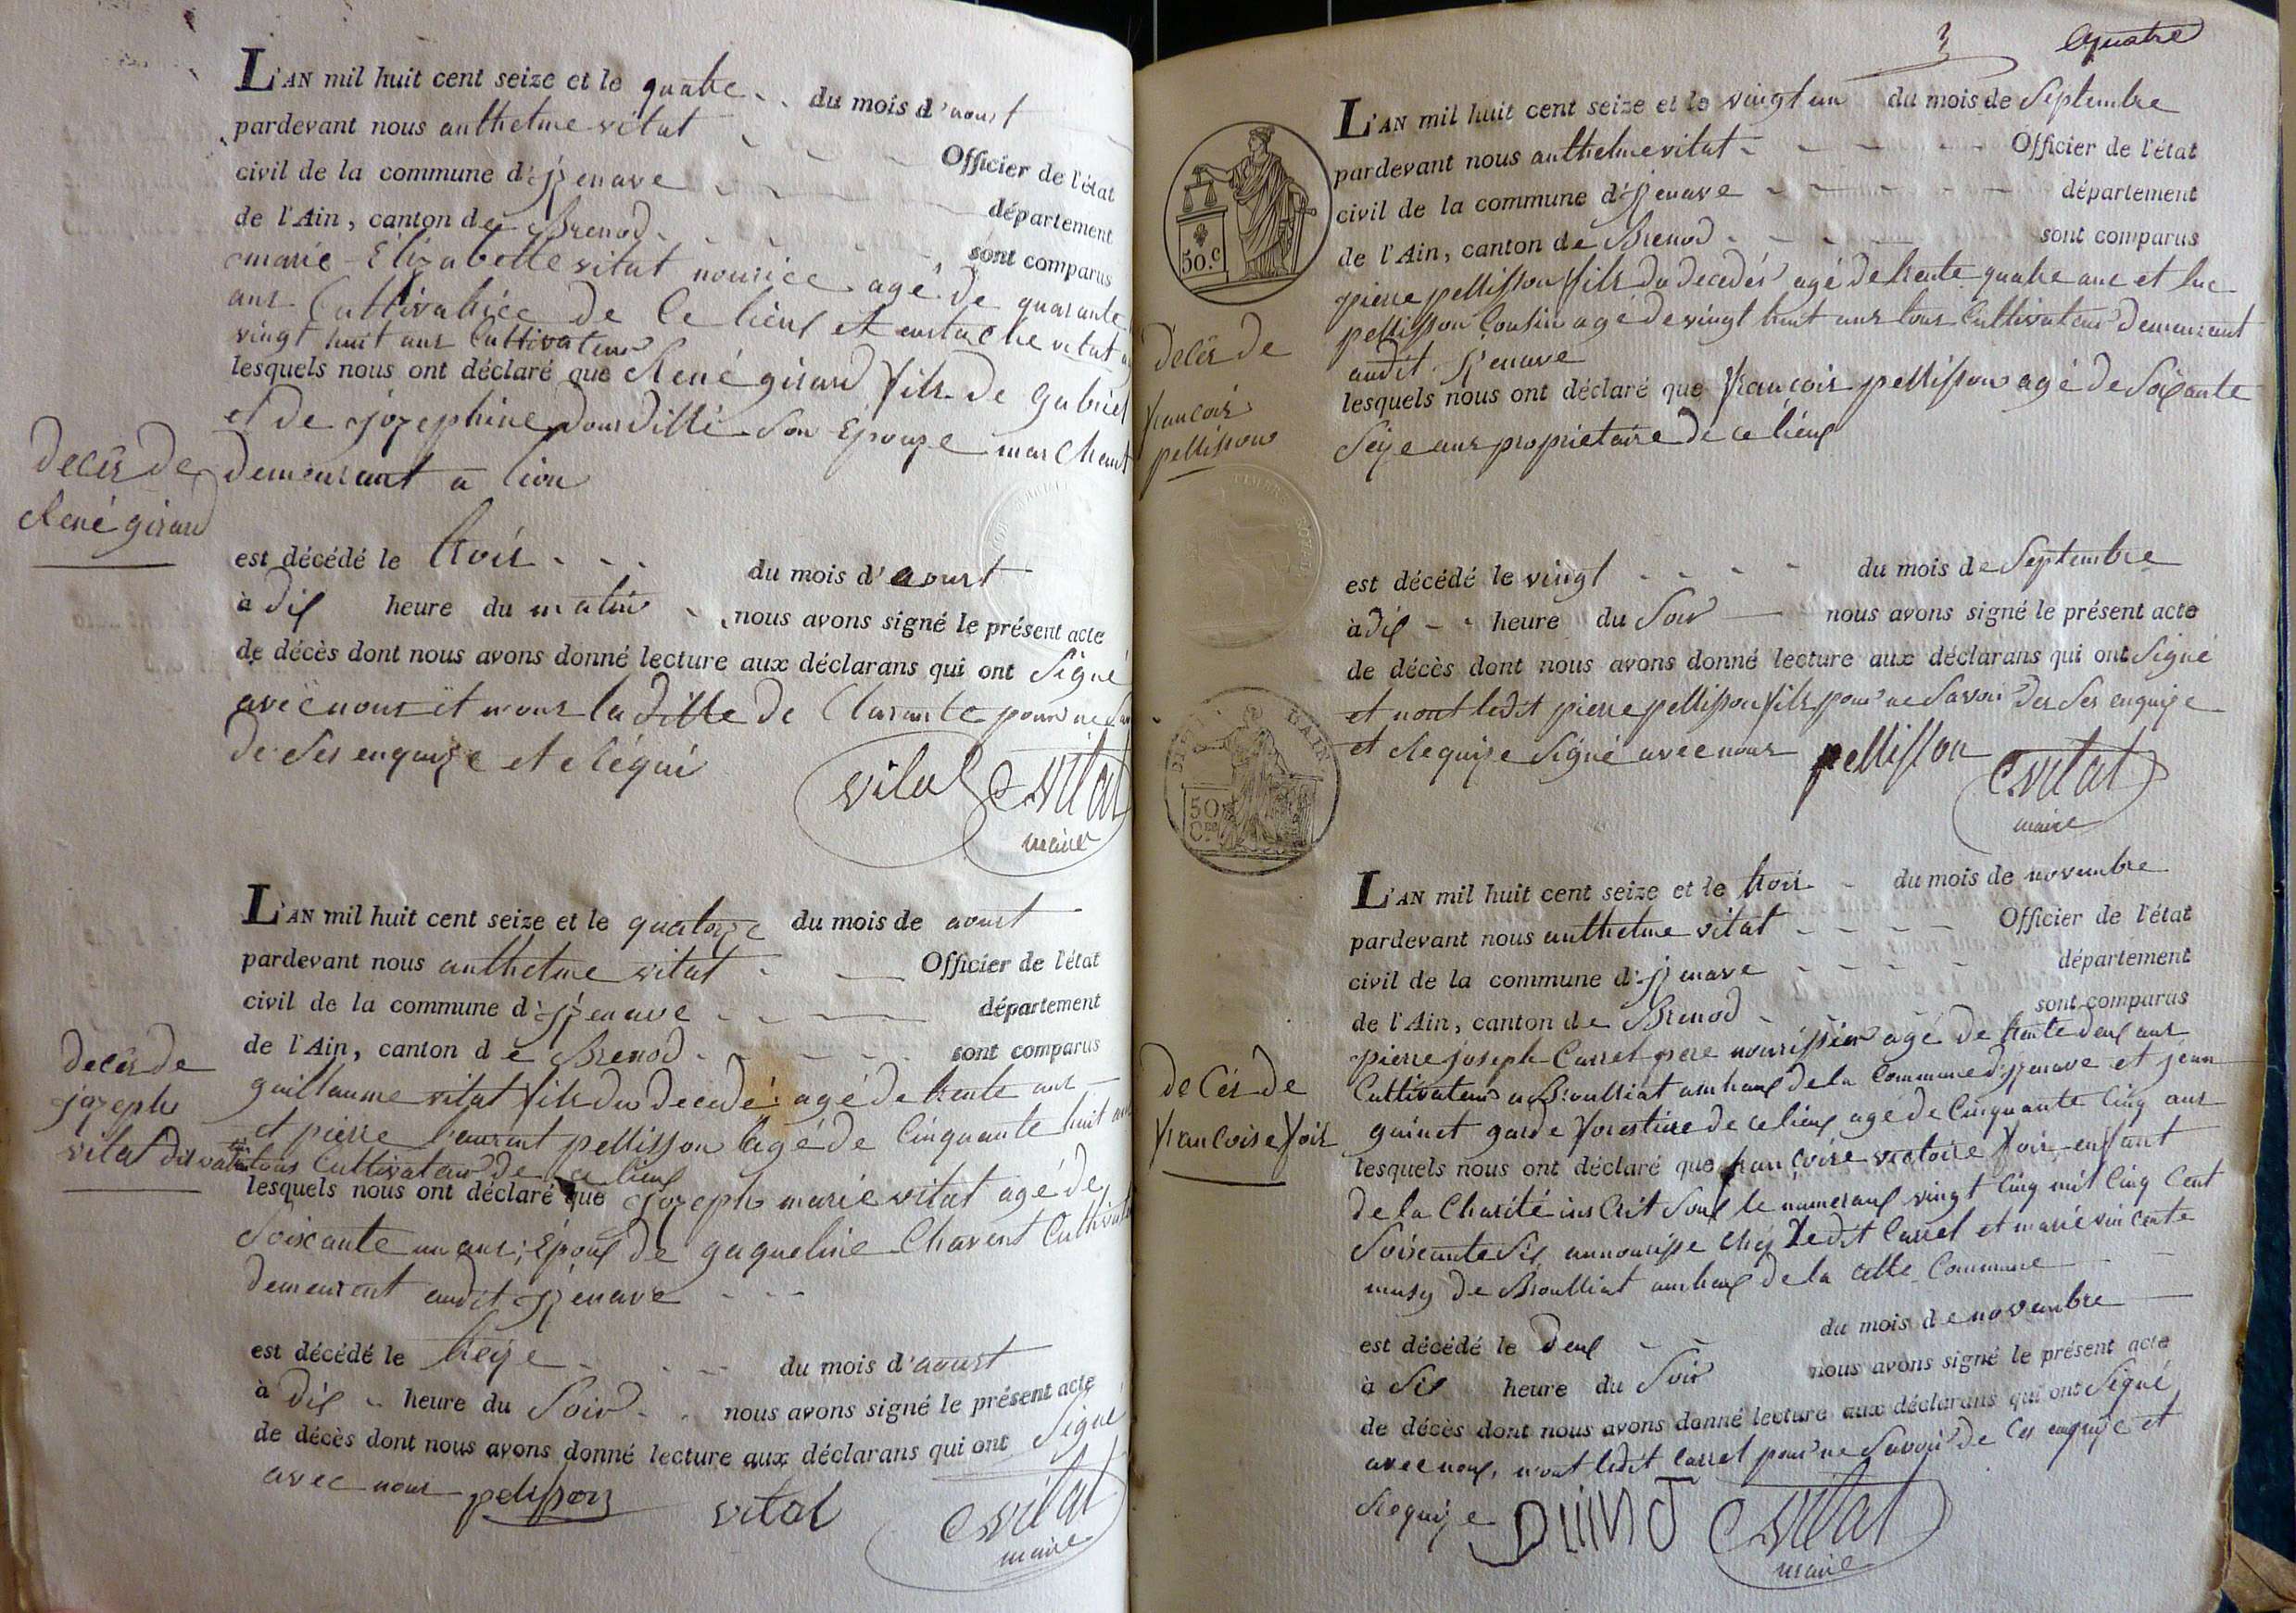 L'AN mil huit cent seize et le quatre du mois d'aoust
pardevant nous anthelme vitat Officier de l'état
civil de la commune d'izenave département
de l'Ain, canton de Brenod sont comparus
marie Elizabette vitat nourice agé de quarante
ans Cultivatrice de Ce lieux et eustache vitat
vingt huit ans Cultivateur
lesquels nous ont déclaré que René girard fils de gabriel
et de jozephine son Epouze marchant
Decés de
René girard
Demeurant a lion
est décédé le trois du mois d'aoust
à dix heure du matin nous avons signé le présent acte
de décès dont nous avons donné lecture aux déclarans qui ont Signé
avec nous et nous la ditte de pour ne
de Ses enquize et Réqui
vital vitat
maire
L'AN mil huit cent seize et le quatorze du mois de aoust
pardevant nous anthelme vitat Officier de l'état
civil de la commune d'izenave département
de l'Ain, canton de Brenod sont comparus
guillaume vitat fils du Decedé agé de trente ans
et pierre Laurent pellisson agé de Cinquante huit ans
tous Cultivateur de ce lieux
decés de
jozeph
vital dit
lesquels nous ont déclaré que jozeph marie vitat agé de
Soixante un ans, Epoux de gaqueline Chavent
demeurent audit izenave
est décédé le treize du mois d'aoust
à dix heure du Soir nous avons signé le présent acte
de décès dont nous avons donné lecture aux déclarans qui ont Signé
avec nous pelisson vital vitat
maire
3 quatre
L'AN mil huit cent seize et le vingt un du mois de Septembre
pardevant nous anthelme vitat Officier de l'état
civil de la commune d'izenave département
de l'Ain, canton de Brenod sont comparus
50.c
pierre pellisson fils du decedés agé de trente quatre ans et luc
pellisson Cousin agé de vingt huit ans tous Cultivateur demeurant
audit izenave
décés de
francois
pellisson
lesquels nous ont déclaré que francois pellisson agé de Soixante
Seize ans proprietaire de ce lieux
est décédé le vingt du mois de Septembre
à dix heure du Soir nous avons signé le présent acte
de décès dont nous avons donné lecture aux déclarans qui ont Signé
et nont ledit pierre pellisson fils pour ne Savoir de Ses enquize
et Requize Signé avec nous pellisson vitat
maire
50
L'AN mil huit cent seize et le trois du mois de novembre
pardevant nous anthelme vitat Officier de l'état
civil de la commune d'izenave département
de l'Ain, canton de Brenod sont comparus
pierre joseph Carrel pere nourissier agé de trente deux ans
Cultivateur a Broulliat amhaux de la Commune d'izenave et jean
guinet garde forestiere de ce lieux agé de Cinquante Cinq ans
deCés de
francoise foir
lesquels nous ont déclaré que francoise victoire foir enfant
de la Charité inscrit Sous le numeraux vingt Cinq mil Cinq Cent
Soixante Six annourisse chez ledit Carrel et marie vincente
musy de Broulliat amhaux de la ditte Commune
est décédé le deux du mois de novembre
à Six heure du Soir nous avons signé le présent acte
de décès dont nous avons donné lecture aux déclarans qui ont Signé
avec nous, n'ont ledit Carrel pour ne Savoir de Ces enquize et
Requize vitat
maire